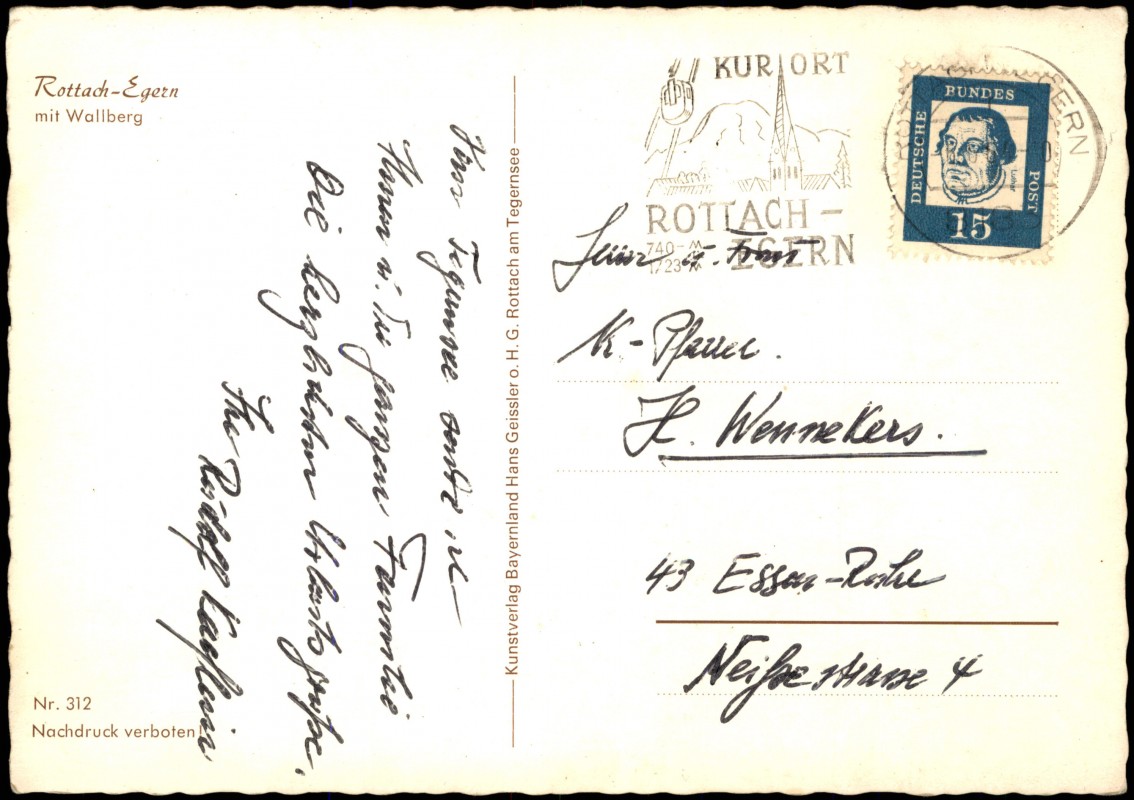 Rottach-Egern
mit Wallberg
Vom Tegernsee sende ich
Ihnen u. der ganzen Familie
Die herzlichsten Urlaubsgrüße.
Ihr Rudolf
Nr. 312
Nachdruck verboten
Kunstverlag Bayernland Hans Geissler o. H. G. Rottach am Tegernsee
KURORT
ROTTACH-
EGERN
740-M
1723-M
DEUTSCHE BUNDES POST
Luther
15
u. Frau
K-Pfarrer.
H. Wennekers.
43 Essen-Ruhr
Neißestrasse 4